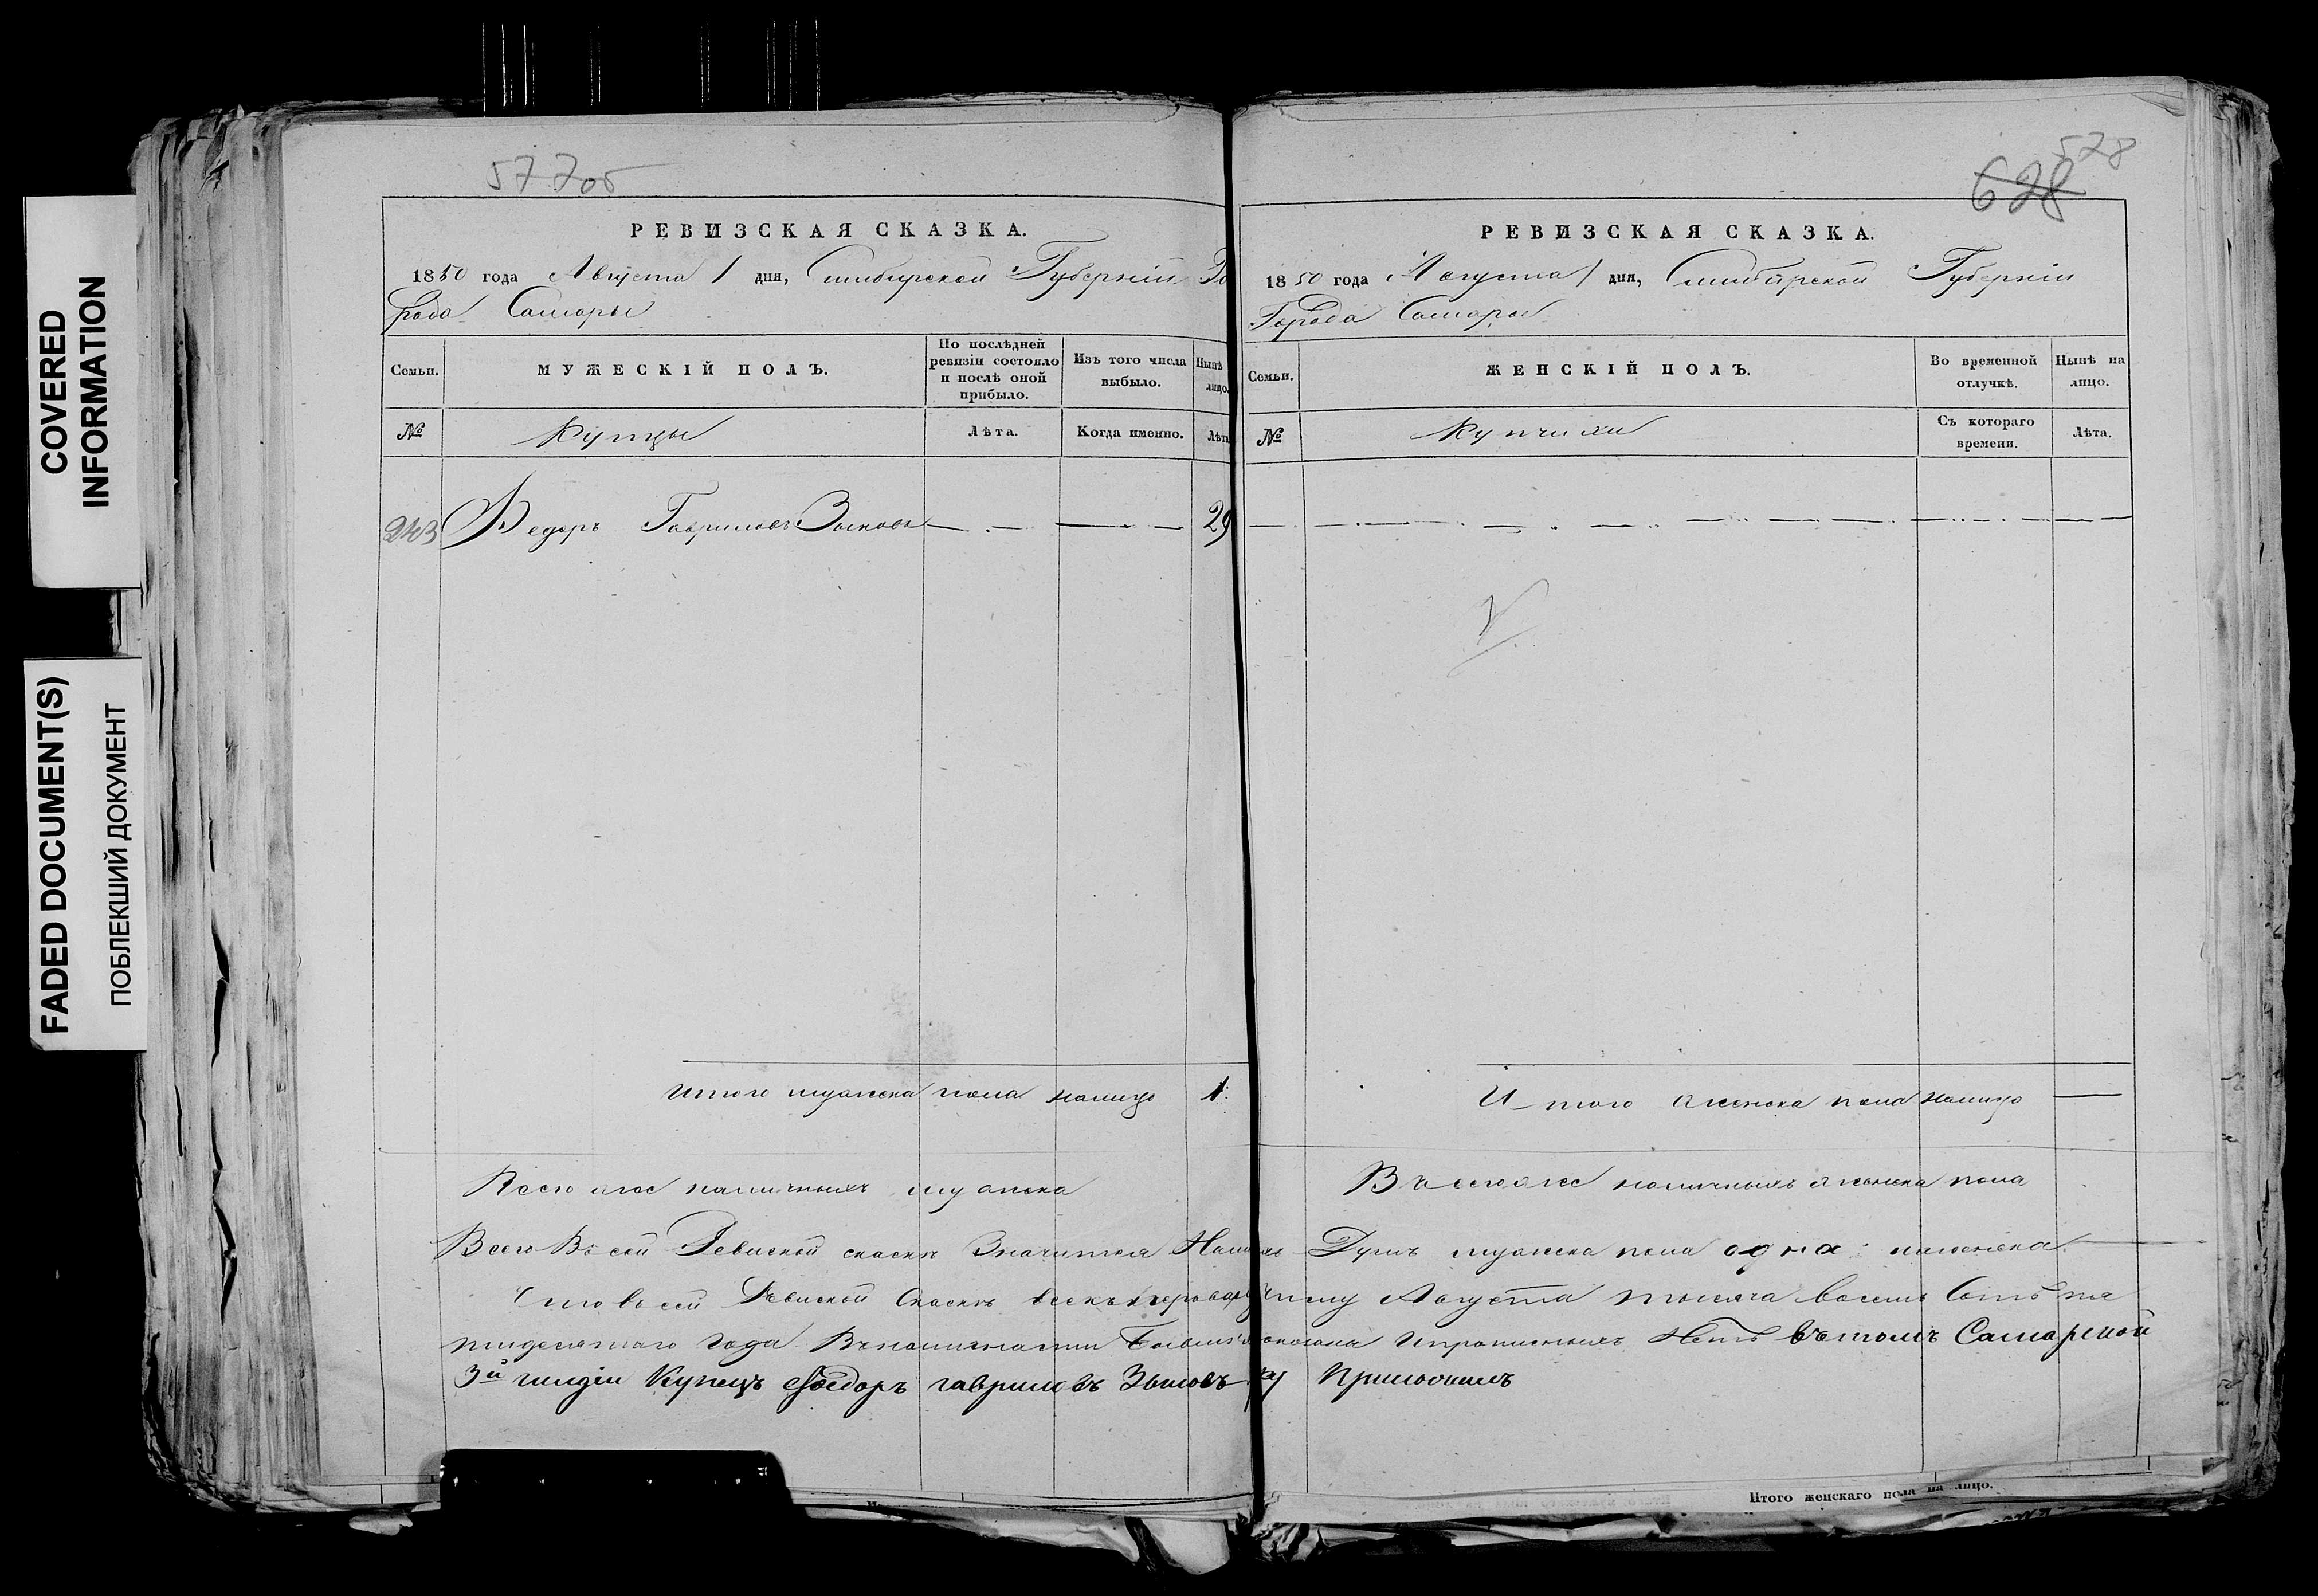 COVERED
INFORMATION
FADED DOCUMENT(S)
ПОБЛЕКШИЙ ДОКУМЕНТ
577об
РЕВИЗСКАЯ СКАЗКА.
1850 года Августа 1 дня, Симбирской Губерніи Го
рода Самары
Семьи.
МУЖЕСКІЙ ПОЛЪ.
По послѣдней
ревизіи состояло
и послѣ оной
прибыло.
Изъ того числа
выбыло.
Нынѣ
лицо.
№
Купцы
Лѣта.
Когда именно.
Лѣта
243 Ѳедоръ Гавриловъ Зыковъ — — 29
Итого мужска пола налицо 1.
Всего же наличныхъ мужска
578
628
РЕВИЗСКАЯ СКАЗКА.
1850 года Августа 1 дня, Симбирской Губерніи
Города Самары
Семьи.
ЖЕНСКІЙ ПОЛЪ.
Во временной
отлучкѣ.
Нынѣ на
лицо.
№
Купчихи
Съ котораго
времени.
Лѣта.
Итого женска пола налицо —
Всего же наличныхъ женска пола
Всего Въ сей Ревиской скаскѣ Значится Душъ мужска пола одна; женска —
Что въ сей Ревиской Скаскѣ Августа тысяча восемь Сотъ пя
тидесятаго года Въ наличности показана Нетъ въ томъ Самарской
3й гилдіи Купецъ Ѳедоръ гавриловъ Зыковъ руку Приложилъ
Итого женскаго пола на лицо.